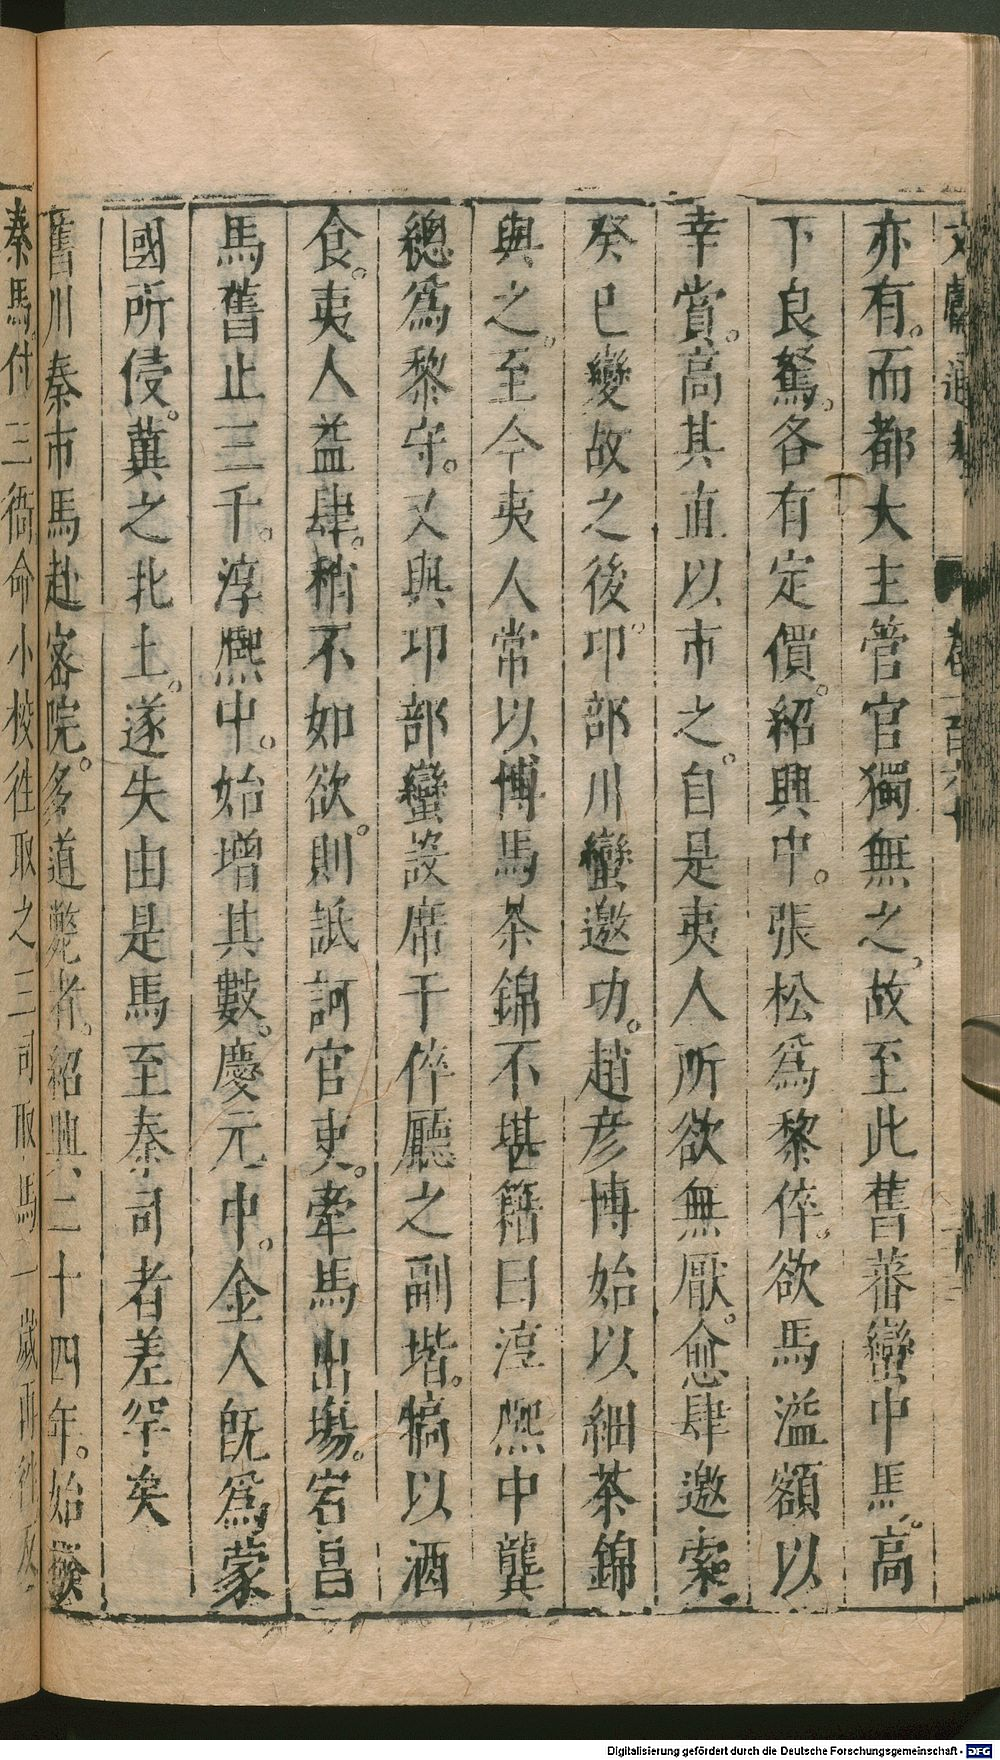 文獻通考 卷一百六十
亦有。而都大主管官獨無之。故至此舊蕃蠻中馬。高
下良駑。各有定價。紹興中。張松爲黎倅。欲馬溢額以
幸賞。高其直以市之。自是夷人所欲無厭。愈肆邀索
癸巳變故之後。邛部川蠻邀功。趙彥博始以細茶錦
與之。至今夷人常以博馬茶錦不堪籍口淳熙中龔
總爲黎守。又與邛部蠻設席于倅廳之副堦。犒以酒
食。夷人益肆。稍不如欲。則詆訶官吏。牽馬出塲。宕昌
馬舊止三千。淳熙中。始增其數。慶元中。金人旣爲蒙
國所侵。冀之北土。遂失由是馬至秦司者差罕矣
舊川秦市馬赴密院。多道斃者。紹興二十四年。始撥
秦馬。付三衙命小校徃取之三司取馬一歲再徃反
Digitalisierung gefördert durch die Deutsche Forschungsgemeinschaft - DFG